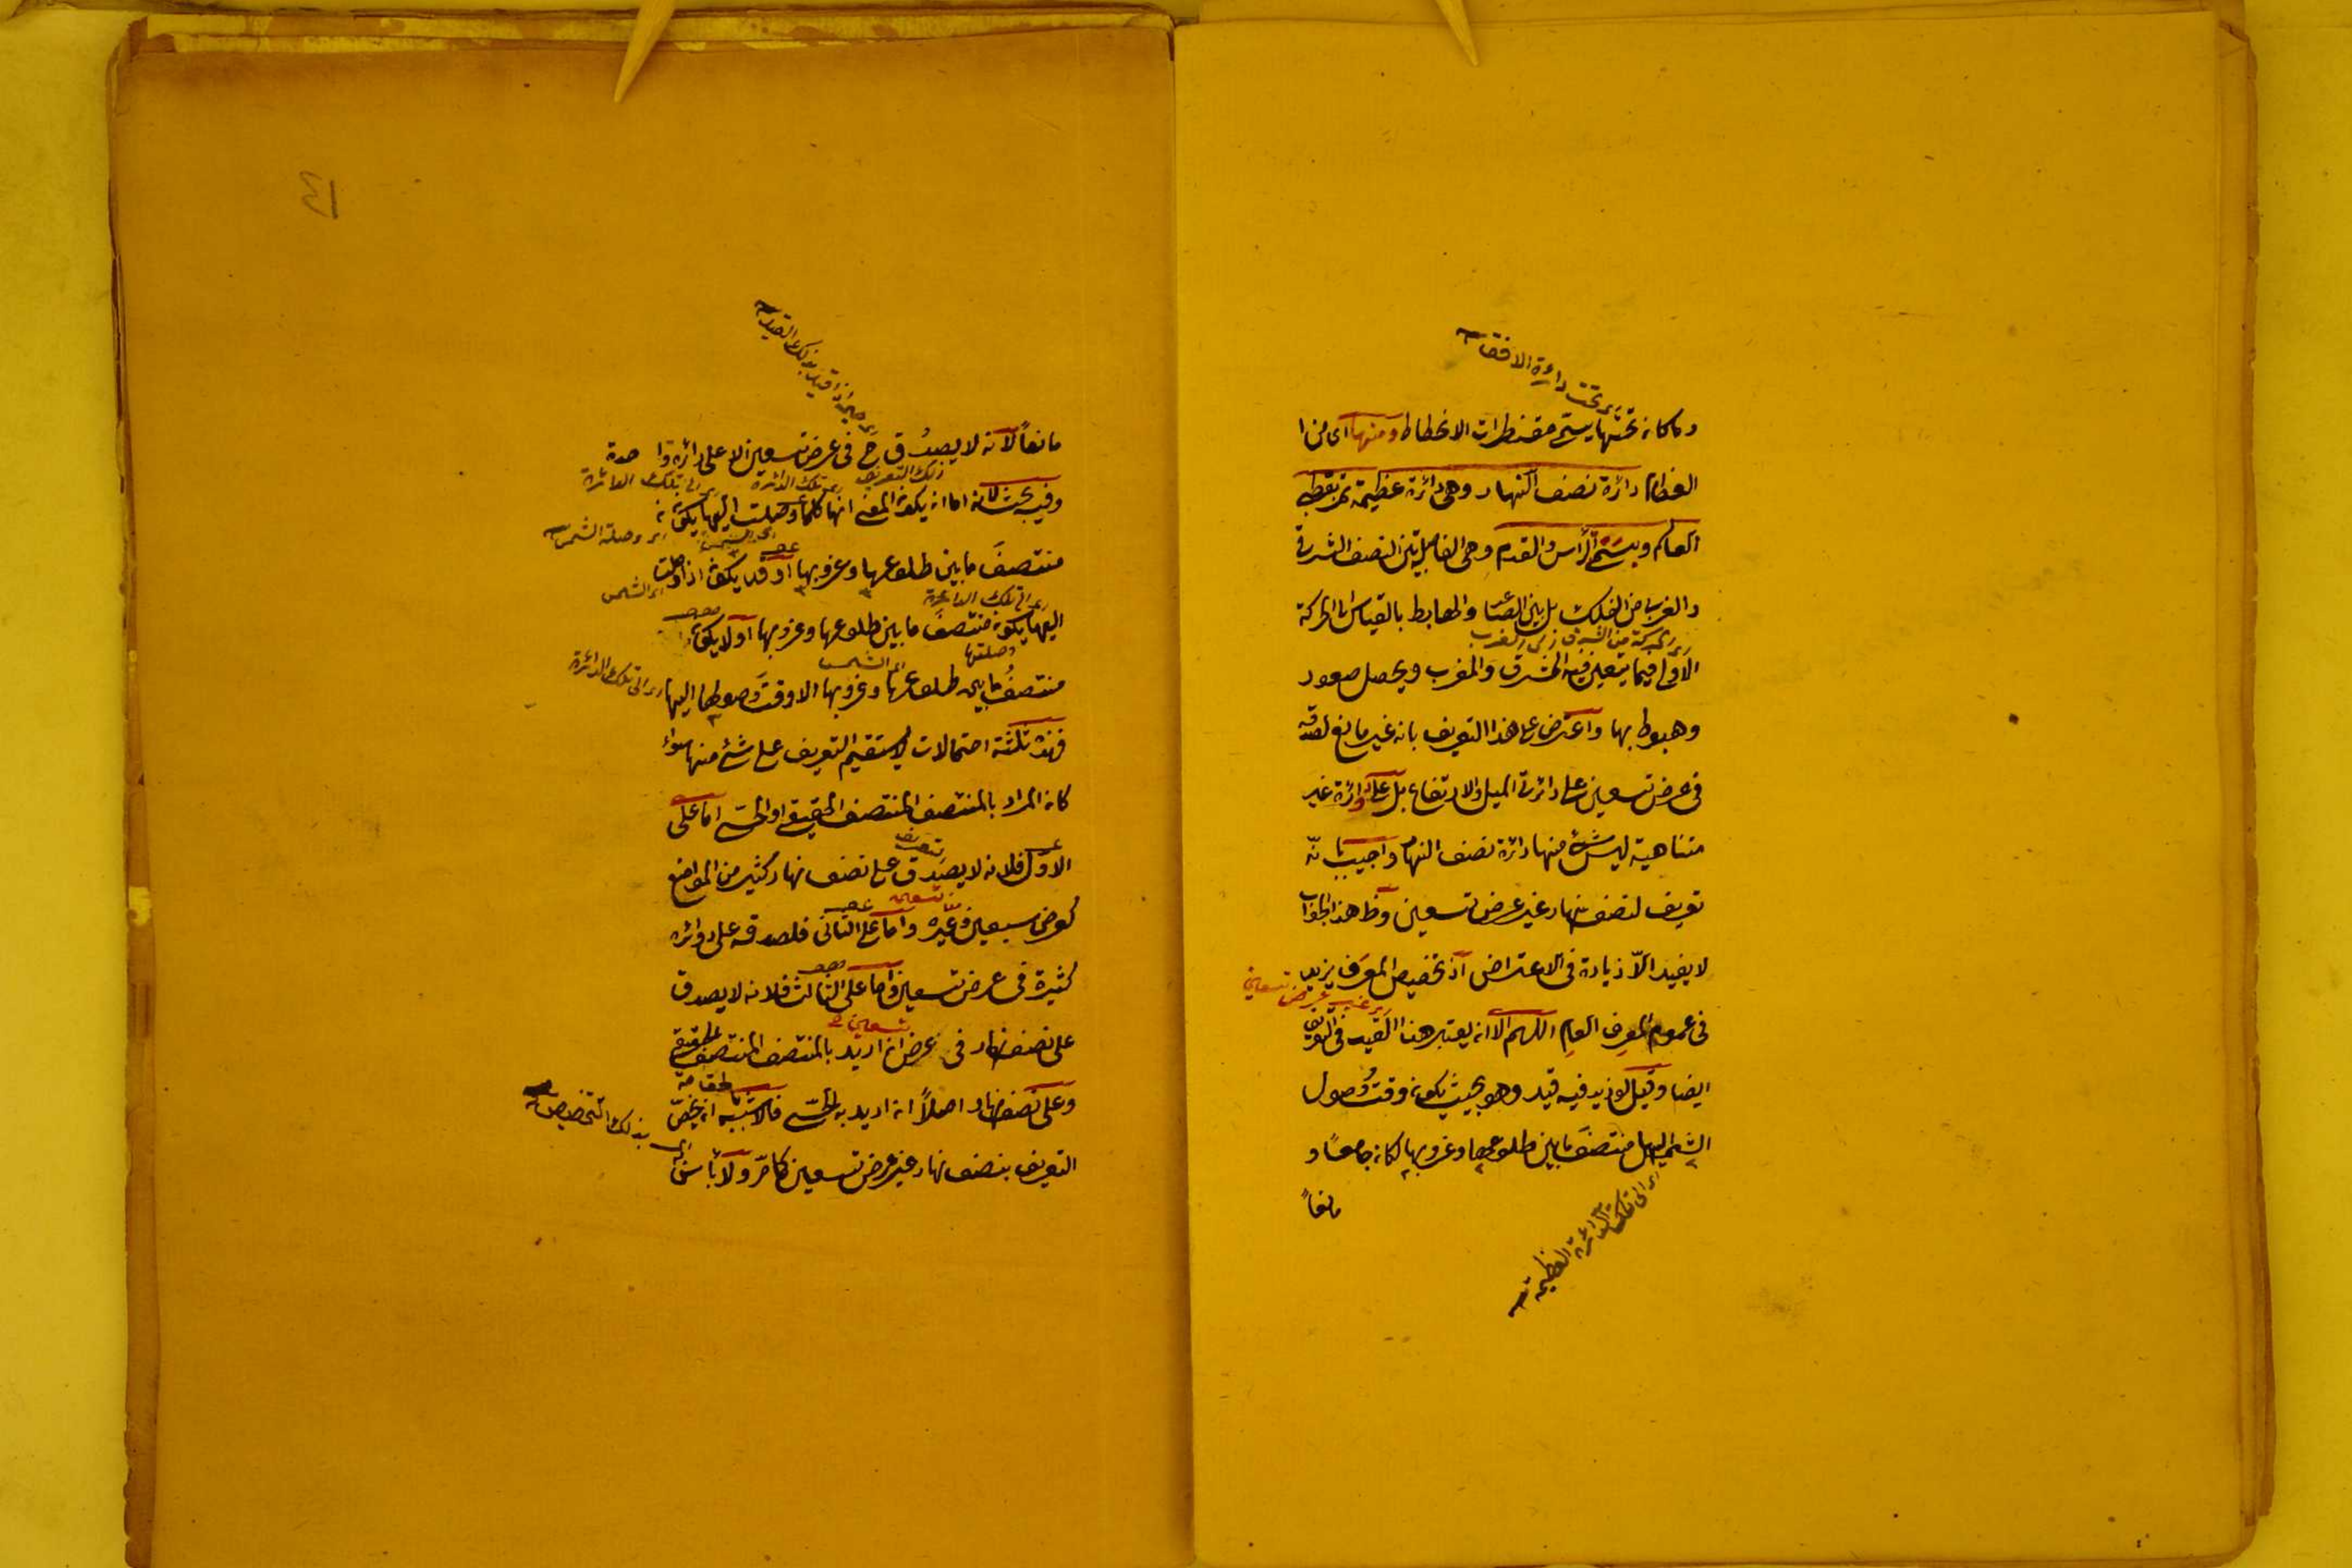 اى تحت دائرة الافق
وما كان تحتها يسمى مقنطرات الانحطاط ومنها اى من ا
العظام دائرة نصف النهار وهى دائرة عظيمة تمر بقطبى
العالم وبسمتى الرأس والقدم وهى الفاصلة بين النصف الشرقى
والغربى من الفلك بل بين الصاعد والهابط بالقياس الى الحركة
الاولى فيما يتعين فيه المشرق والمغرب ويحصل صعود
وهبوط بها واعترض على هذا التعريف بانه غير مانع لصدقه
فى عرض تسعين على دائرتى الميل والارتفاع بل على دوائر غير
متناهية ليس شئ منها دائرة نصف النهار واجيب بانّه
تعريف لنصف نهار غير عرض تسعين وظ هذا الجواب
لا يفيد الّا زيادة فى الاعتراض اذ تخصيص المعرَف يزيد
اى غير عرض تسعين
فى عموم المعرِف العام اللهم الا ان يعتبر هذا القيد فى التعريف
ايضا وقيل لو زيد فيه قيد وهو بحيث يكون وقت وُصول
الشمس اليها منتصفَ ما بين طلوعها وغروبها لكان جامعًا و
مانعاً
اى الى تلك الدائرة العظيمة
مانعاً لانه لا يصدُق ح فى عرض تسعين الا على دائرة واحدة
ذلك التعريف
اى تلك الدائرة
اى الى تلك الدائرة
وفيه بحث لانه اما ان يكون المعنى انها كلما وصلت اليها يكون
اى وصلة الشمس
منتصفَ ما بين طلوعها وغروبها او قد يكون اذا وصلت
اى الشمس
اى الى تلك الدائرة
اليها يكون منتصفَ ما بين طلوعها وغروبها او لا يكون
وصلتها
اى الشمس
منتصفُ ما بين طلوعها وغروبها الا وقتَ وصولها اليها
اى الى تلك الدائرة
فهذه ثلثة احتمالات لا يستقيم التعريف على شئ منها سواء
كان المراد بالمنتصف المنتصف الحقيقى او الحسّى اما على
الاوّل فلانه لا يصدق على نصف نهار كثير من المواضع
تعريف
كعرض سبعين وغيره واما على الثانى فلصدقه على دوائر
تسعين
كثيرة فى عرض تسعين واما على الثالث فلانه لا يصدق
على نصف نهار فى عرض ان اريد بالمنتصف المنتصف الحقيقى
تسعين
وعلى نصف نهار اصلاً ان اريد به الحسّى فالاشبه ان يخصّ
اى بذلك التخصيص
التعريف بنصف نهار غير عرض تسعين كما مرّ ولا بأس